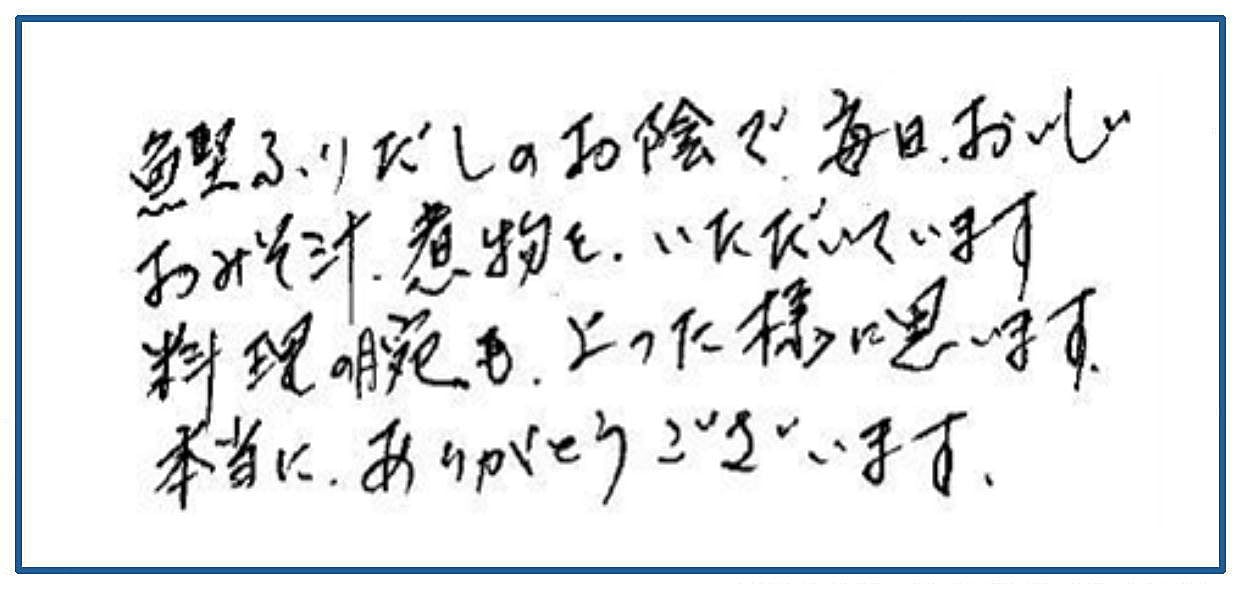 鰹ふりだしのお陰で、毎日、おいしい
おみそ汁、煮物を、いただいています
料理の腕も、上った様に思います。
本当に、ありがとうございます、